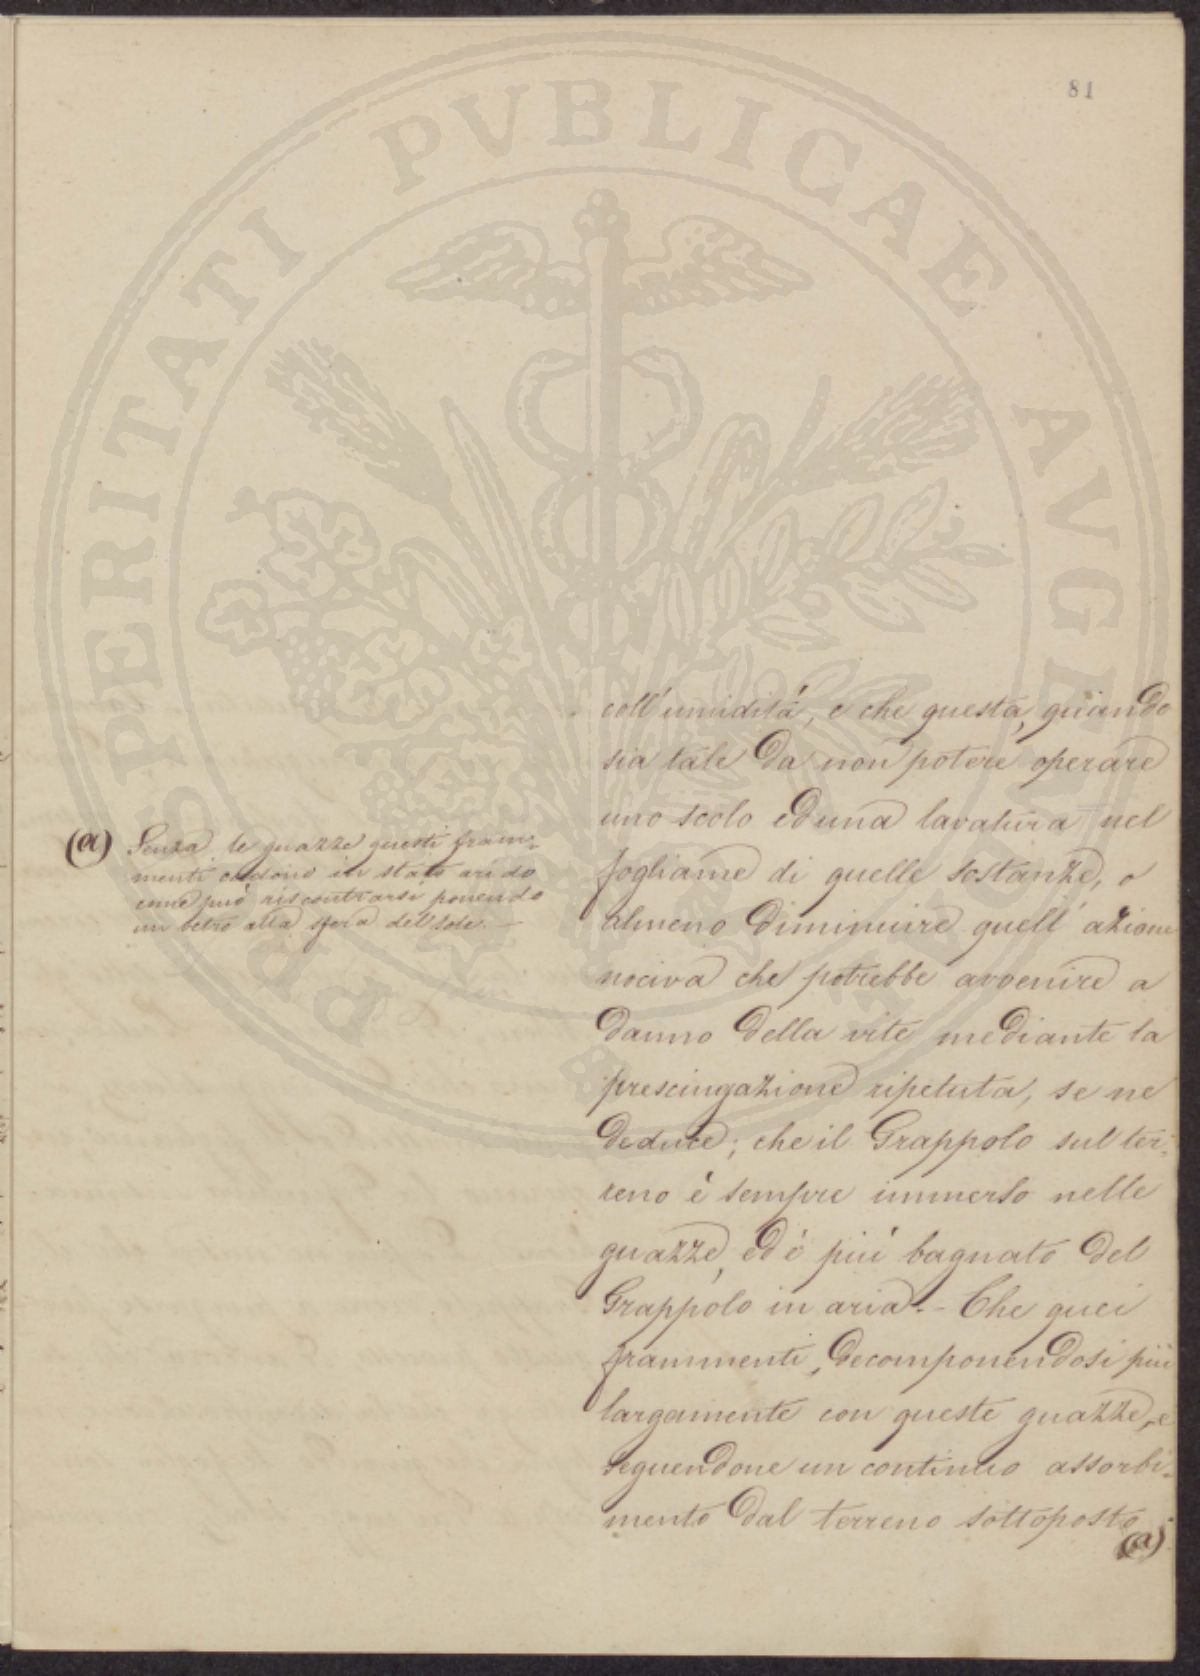 81
coll'umidità, e che questa, quando
sia tale da non potere operare
uno scolo ed una lavatura nel
fogliame di quelle sostanze, o
almeno diminuire quell'azione
nociva che potrebbe avvenire a
danno della vite mediante la
prescingazione ripetuta, se ne
deduce; che il Grappolo sul ter-
reno é sempre immerso nelle
guazze, ed é piú bagnato del
Grappolo in aria. - Che quei
frammenti, decomponendosi più
largamente con queste guazze, e
seguendone un continuo assorbi-
mento dal terreno sottoposto
(a)
(a) Senza le guazze questi fram-
menti cadono in stato arido
come puó riscontrarsi ponendo
un vetro alla sfera del sole. -
PROSPERITATI PVBLICAE AVGENDAE